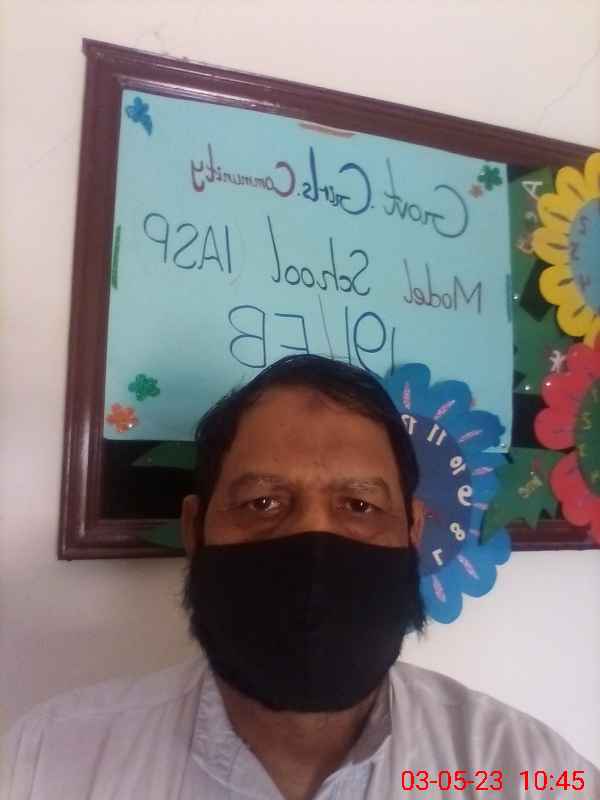 Govt. Girls. Community
Model School (IASP)
19/EB
A
12
11
10
9
8
7
03-05-23 10:45